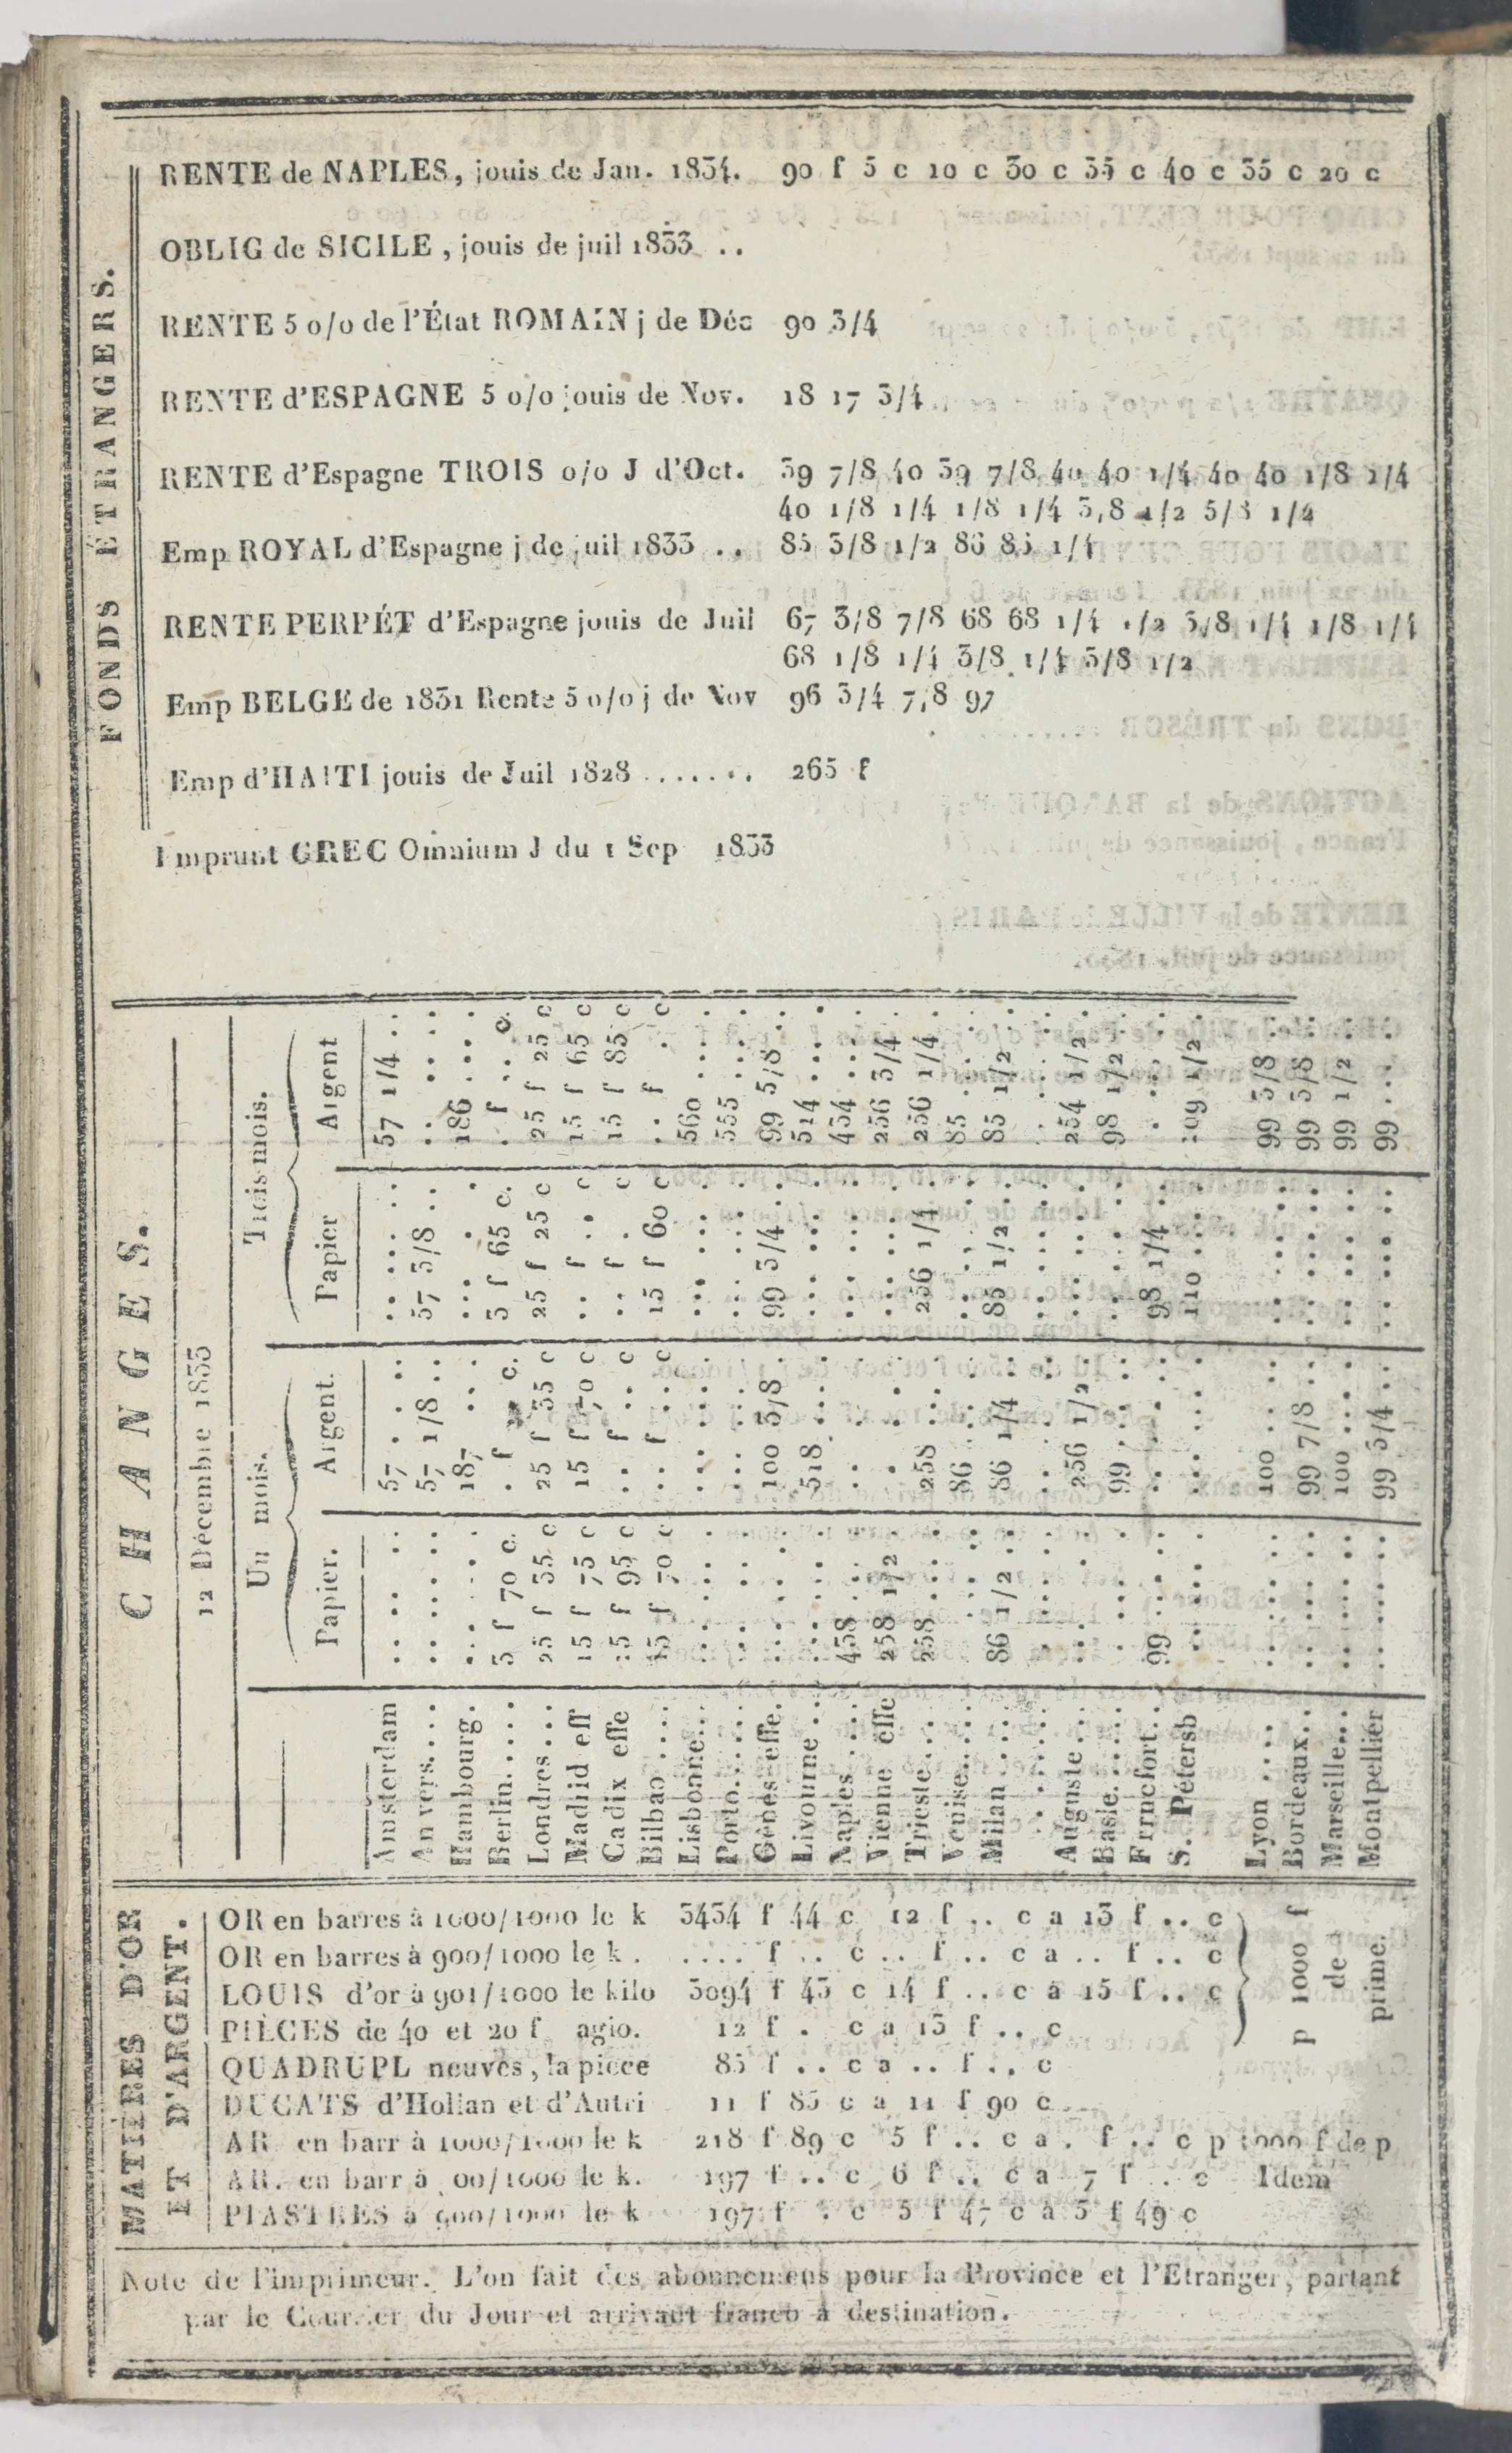 FONDS ÉTRANGERS.
RENTE de NAPLES, jouis de Jan. 1834. 90 f 5 c 10 c 30 c 35 c 40 c 35 c 20 c
OBLIG de SICILE, jouis de juil 1833 ..
RENTE 5 o/o de l'État ROMAIN j de Déc 90 3/4
RENTE d'ESPAGNE 5 o/o jouis de Nov. 18 17 3/4
RENTE d'Espagne TROIS o/o J d'Oct. 39 7/8 40 39 7/8 40 40 1/4 40 40 1/8 1/4
40 1/8 1/4 1/8 1/4 3/8 1/2 5/8 1/2
Emp ROYAL d'Espagne j de juil 1833 .. 85 3/8 1/2 86 85 1/4
RENTE PERPÉT d'Espagne jouis de Juil 67 3/8 7/8 68 68 1/4 1/2 3/8 1/4 1/8 1/4
68 1/8 1/4 3/8 1/4 3/8 1/2
Emp BELGE de 1831 Rente 5 o/o j de Nov 96 3/4 7/8 97
Emp d'HAITI jouis de Juil 1828 ....... 265 f
Emprunt GREC Omnium J du 1 Sep 1833
CHANGES.
12 Décembre 1833
Un mois. Trois mois.
Papier. Argent. Papier Argent
Amsterdam .... 57 .... .... 57 1/4 ..
Anvers.... .... 57 1/8 .. 57 3/8 .. ....
Hambourg. .... 187 ... .... 186 ...
Berlin..... 3 f 70 c. . f .. c. 3 f 65 c. . f .. c.
Londres... 25 f 35 c 25 f 35 c 25 f 25 c 25 f 25 c
Madrid eff 15 f 75 c 15 f 70 c .. f .. c 15 f 65 c
Cadix effe 15 f 95 c .. f .. c .. f .. c 15 f 85 c
Bilbao .... 15 f 70 c .. f .. c 15 f 60 c .. f .. c
Lisbonne... .... .... .... 560 ....
Porto...... .... .... .... 555 ....
Gênes effe. .... 100 3/8 . 99 3/4 .. 99 5/8 .
Livourne .. .... 518 .... .... 514 ....
Naples .... 438 .... .... .... 434 ....
Vienne effe 258 1/2 .... .... 256 3/4 .
Trieste.... 258 .... 258 .... 256 1/4 . 256 1/4 .
Venise..... .... 86 .... .... 85 ....
Milan ..... 86 1/2 .. 86 1/4 .. 85 1/2 .. 85 1/2 ..
Auguste ... .... 256 1/2 . .... 254 1/2 .
Basle...... .... 99 .... .... 98 1/2 ..
Frrncfort.. 99 .... .... 98 1/4 .. ....
S. Pétersb .... .... 110 .... 109 1/2 .
Lyon ..... .... 100 .... .... 99 5/8 ..
Bordeaux... .... 99 7/8 .. .... 99 5/8 ..
Marseille... .... 100 .... .... 99 1/2 ..
Montpellier .... 99 3/4 .. .... 99 ....
MATIÈRES D'OR ET D'ARGENT.
OR en barres à 1000/1000 le k 3434 f 44 c 12 f .. c a 13 f .. c
OR en barres à 900/1000 le k . .... f .. c .. f .. c a .. f .. c
LOUIS d'or à 901/1000 le kilo 3094 f 43 c 14 f .. c a 15 f .. c
PIÈCES de 40 et 20 f agio. 12 f . c a 13 f .. c
p 1000 f de prime.
QUADRUPL neuves, la pièce 83 f .. c a .. f .. c
DUCATS d'Hollan et d'Autri 11 f 85 c a 11 f 90 c
AR. en barr à 1000/1000 le k 218 f 89 c 5 f .. c a . f .. c p 1000 f de p
AR. en barr à 00/1000 le k. 197 f .. c 6 f .. c a 7 f . c Idem
PIASTRES à 900/1000 le k 197 f . c 5 f 47 c à 5 f 49 c
Note de l'imprimeur. L'on fait des abonnemens pour la Province et l'Etranger, partant
par le Courrier du Jour et arrivant franco à destination.